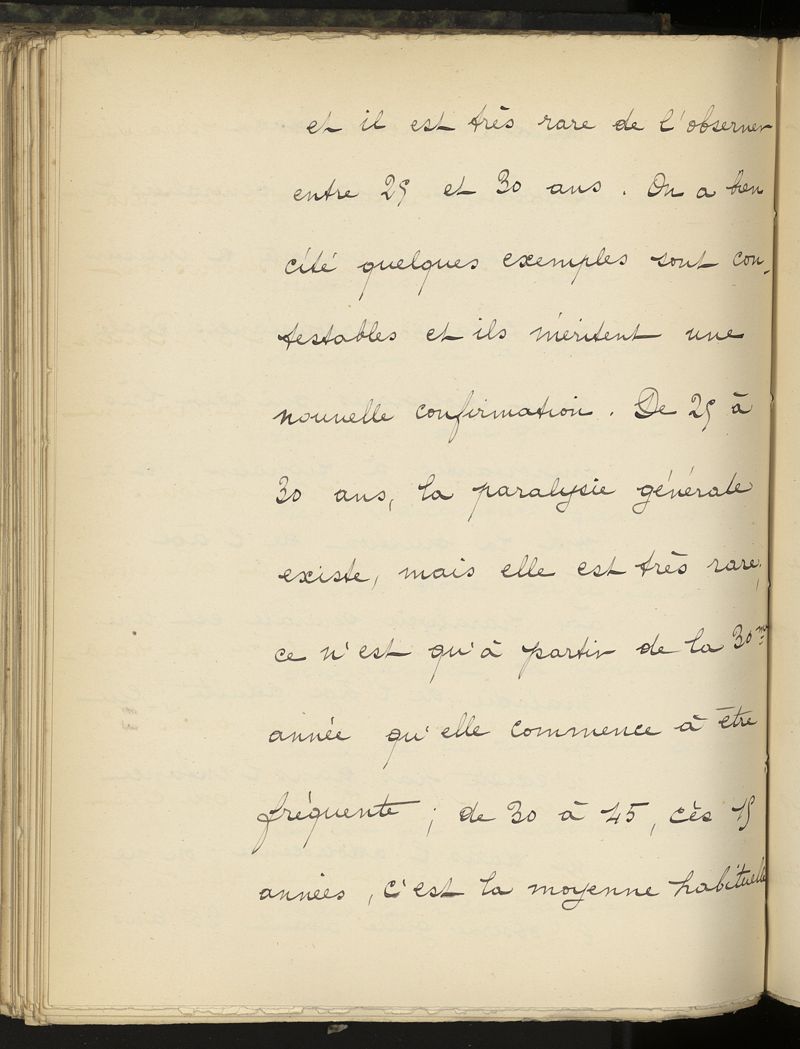 et il est très rare de l'observer
entre 25 et 30 ans. On a bien
cité quelques exemples sont con-
testables et ils méritent une
nouvelle confirmation. De 25 à
30 ans, la paralysie générale
existe, mais elle est très rare,
ce n'est qu'à partir de la 30me
année qu'elle commence à être
fréquente; de 30 à 45, cès 15
années, c'est la moyenne habituelle